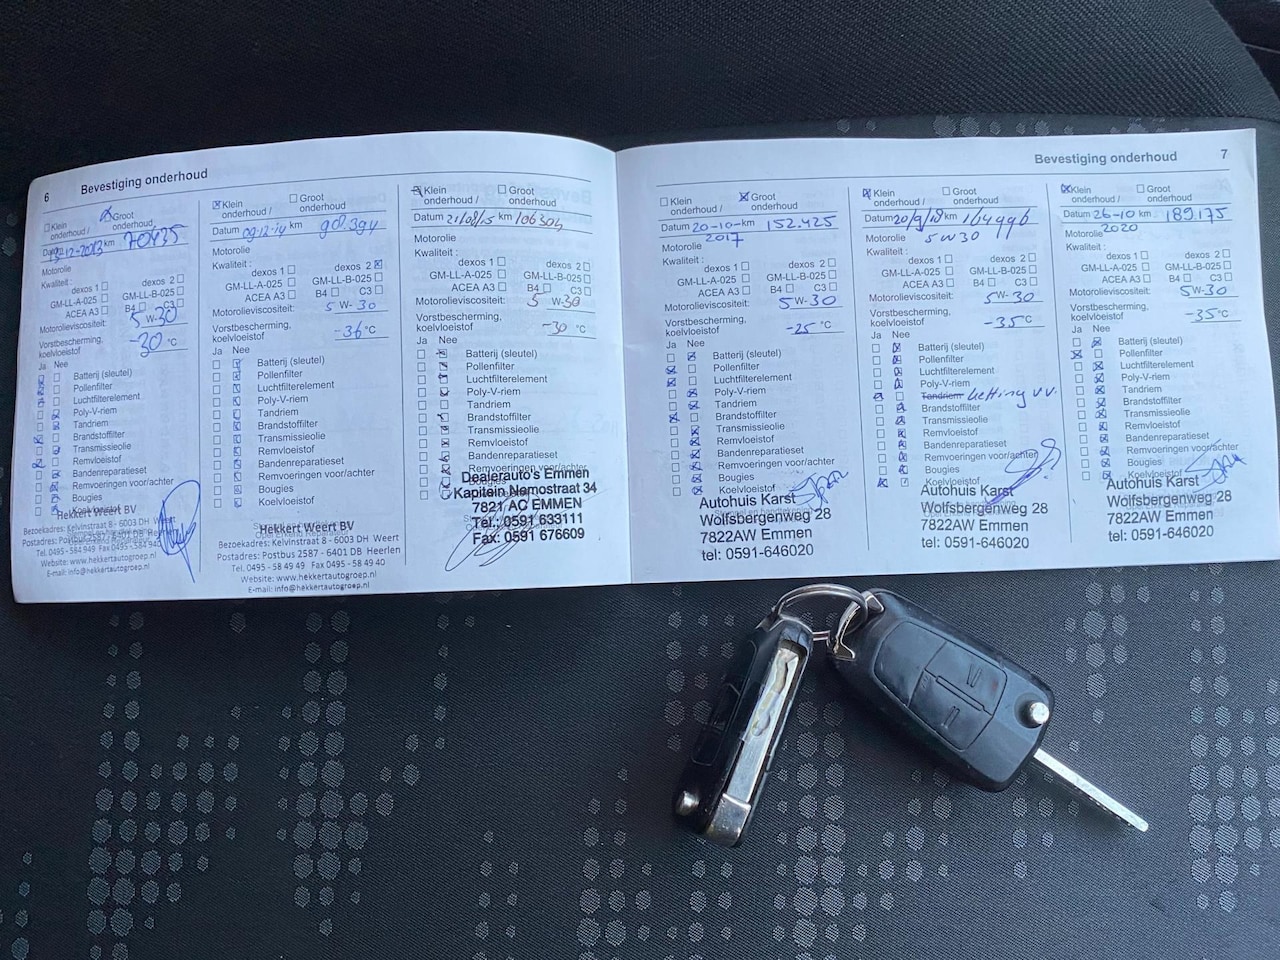 6
Bevestiging onderhoud
Klein onderhoud /
Groot onderhoud
Datum 13-12-2013 km 70435
Motorolie
Kwaliteit :
dexos 1
dexos 2
GM-LL-A-025
GM-LL-B-025
ACEA A3
B4
C3
Motorolieviscositeit: 5 W-30
Vorstbescherming, koelvloeistof -30 °C
Ja Nee
Batterij (sleutel)
Pollenfilter
Luchtfilterelement
Poly-V-riem
Tandriem
Brandstoffilter
Transmissieolie
Remvloeistof
Bandenreparatieset
Remvoeringen voor/achter
Bougies
Koelvloeistof
Hekkert Weert BV
Bezoekadres: Kelvinstraat 8 - 6003 DH Weert
Postadres: Postbus 2587 - 6401 DB Heerlen
Tel. 0495 - 584 949 Fax 0495 - 584 940
Website: www.hekkertautogroep.nl
E-mail: info@hekkertautogroep.nl
Klein onderhoud /
Groot onderhoud
Datum 09-12-14 km
Motorolie
Kwaliteit :
dexos 1
dexos 2
GM-LL-A-025
GM-LL-B-025
ACEA A3
B4
C3
Motorolieviscositeit: 5 W-30
Vorstbescherming, koelvloeistof -36 °C
Ja Nee
Batterij (sleutel)
Pollenfilter
Luchtfilterelement
Poly-V-riem
Tandriem
Brandstoffilter
Transmissieolie
Remvloeistof
Bandenreparatieset
Remvoeringen voor/achter
Bougies
Koelvloeistof
Hekkert Weert BV
Bezoekadres: Kelvinstraat 8 - 6003 DH Weert
Postadres: Postbus 2587 - 6401 DB Heerlen
Tel. 0495 - 58 49 49 Fax 0495 - 58 49 40
Website: www.hekkertautogroep.nl
E-mail: info@hekkertautogroep.nl
Klein onderhoud /
Groot onderhoud
Datum 21/08/15 km 106304
Motorolie
Kwaliteit :
dexos 1
dexos 2
GM-LL-A-025
GM-LL-B-025
ACEA A3
B4
C3
Motorolieviscositeit: 5 W-30
Vorstbescherming, koelvloeistof -30 °C
Ja Nee
Batterij (sleutel)
Pollenfilter
Luchtfilterelement
Poly-V-riem
Tandriem
Brandstoffilter
Transmissieolie
Remvloeistof
Bandenreparatieset
Remvoeringen voor/achter
Bougies
Dealerauto's Emmen
Kapitein Nemostraat 34
7821 AC EMMEN
Tel.: 0591 633111
Fax: 0591 676609
Bevestiging onderhoud
7
Klein onderhoud /
Groot onderhoud
Datum 20-10-2017 km 152.425
Motorolie
Kwaliteit :
dexos 1
dexos 2
GM-LL-A-025
GM-LL-B-025
ACEA A3
B4
C3
Motorolieviscositeit: 5W-30
Vorstbescherming, koelvloeistof -25 °C
Ja Nee
Batterij (sleutel)
Pollenfilter
Luchtfilterelement
Poly-V-riem
Tandriem
Brandstoffilter
Transmissieolie
Remvloeistof
Bandenreparatieset
Remvoeringen voor/achter
Bougies
Koelvloeistof
Autohuis Karst
Wolfsbergenweg 28
7822AW Emmen
tel: 0591-646020
Klein onderhoud /
Groot onderhoud
Datum 20/9/18 km
Motorolie 5W30
Kwaliteit :
dexos 1
dexos 2
GM-LL-A-025
GM-LL-B-025
ACEA A3
B4
C3
Motorolieviscositeit: 5W-30
Vorstbescherming, koelvloeistof -35 °C
Ja Nee
Batterij (sleutel)
Pollenfilter
Luchtfilterelement
Poly-V-riem
Tandriem ketting v.v.
Brandstoffilter
Transmissieolie
Remvloeistof
Bandenreparatieset
Remvoeringen voor/achter
Bougies
Koelvloeistof
Autohuis Karst
Wolfsbergenweg 28
7822AW Emmen
tel: 0591-646020
Klein onderhoud /
Groot onderhoud
Datum 26-10 2020 km 189.175
Motorolie
Kwaliteit :
dexos 1
dexos 2
GM-LL-A-025
GM-LL-B-025
ACEA A3
B4
C3
Motorolieviscositeit: 5W-30
Vorstbescherming, koelvloeistof -35 °C
Ja Nee
Batterij (sleutel)
Pollenfilter
Luchtfilterelement
Poly-V-riem
Tandriem
Brandstoffilter
Transmissieolie
Remvloeistof
Bandenreparatieset
Remvoeringen voor/achter
Bougies
Koelvloeistof
Autohuis Karst
Wolfsbergenweg 28
7822AW Emmen
tel: 0591-646020